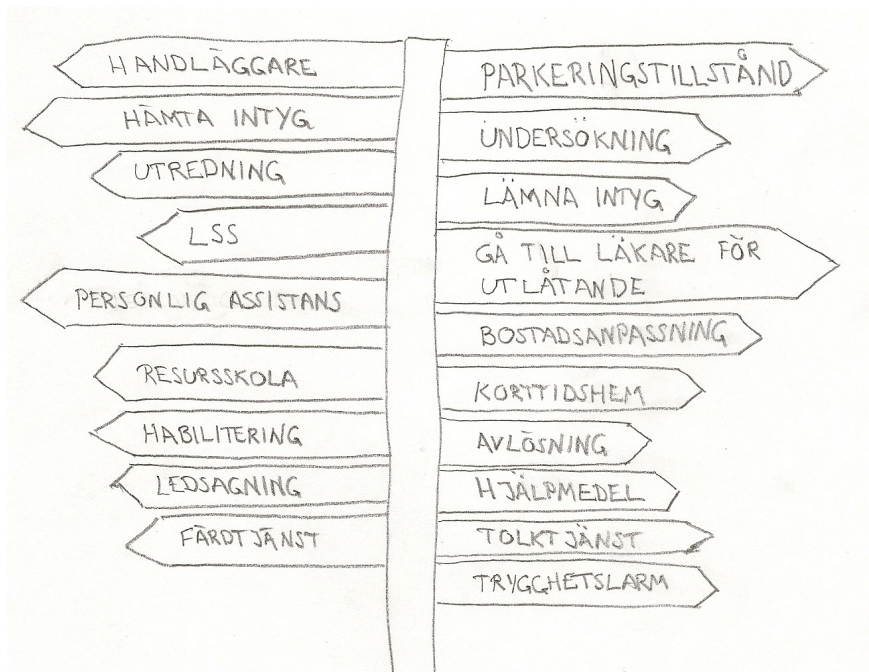 HANDLÄGGARE
HÄMTA INTYG
UTREDNING
LSS
PERSONLIG ASSISTANS
RESURSSKOLA
HABILITERING
LEDSAGNING
FÄRDTJÄNST
PARKERINGSTILLSTÅND
UNDERSÖKNING
LÄMNA INTYG
GÅ TILL LÄKARE FÖR
UTLÅTANDE
BOSTADSANPASSNING
KORTTIDSHEM
AVLÖSNING
HJÄLPMEDEL
TOLKTJÄNST
TRYGGHETSLARM